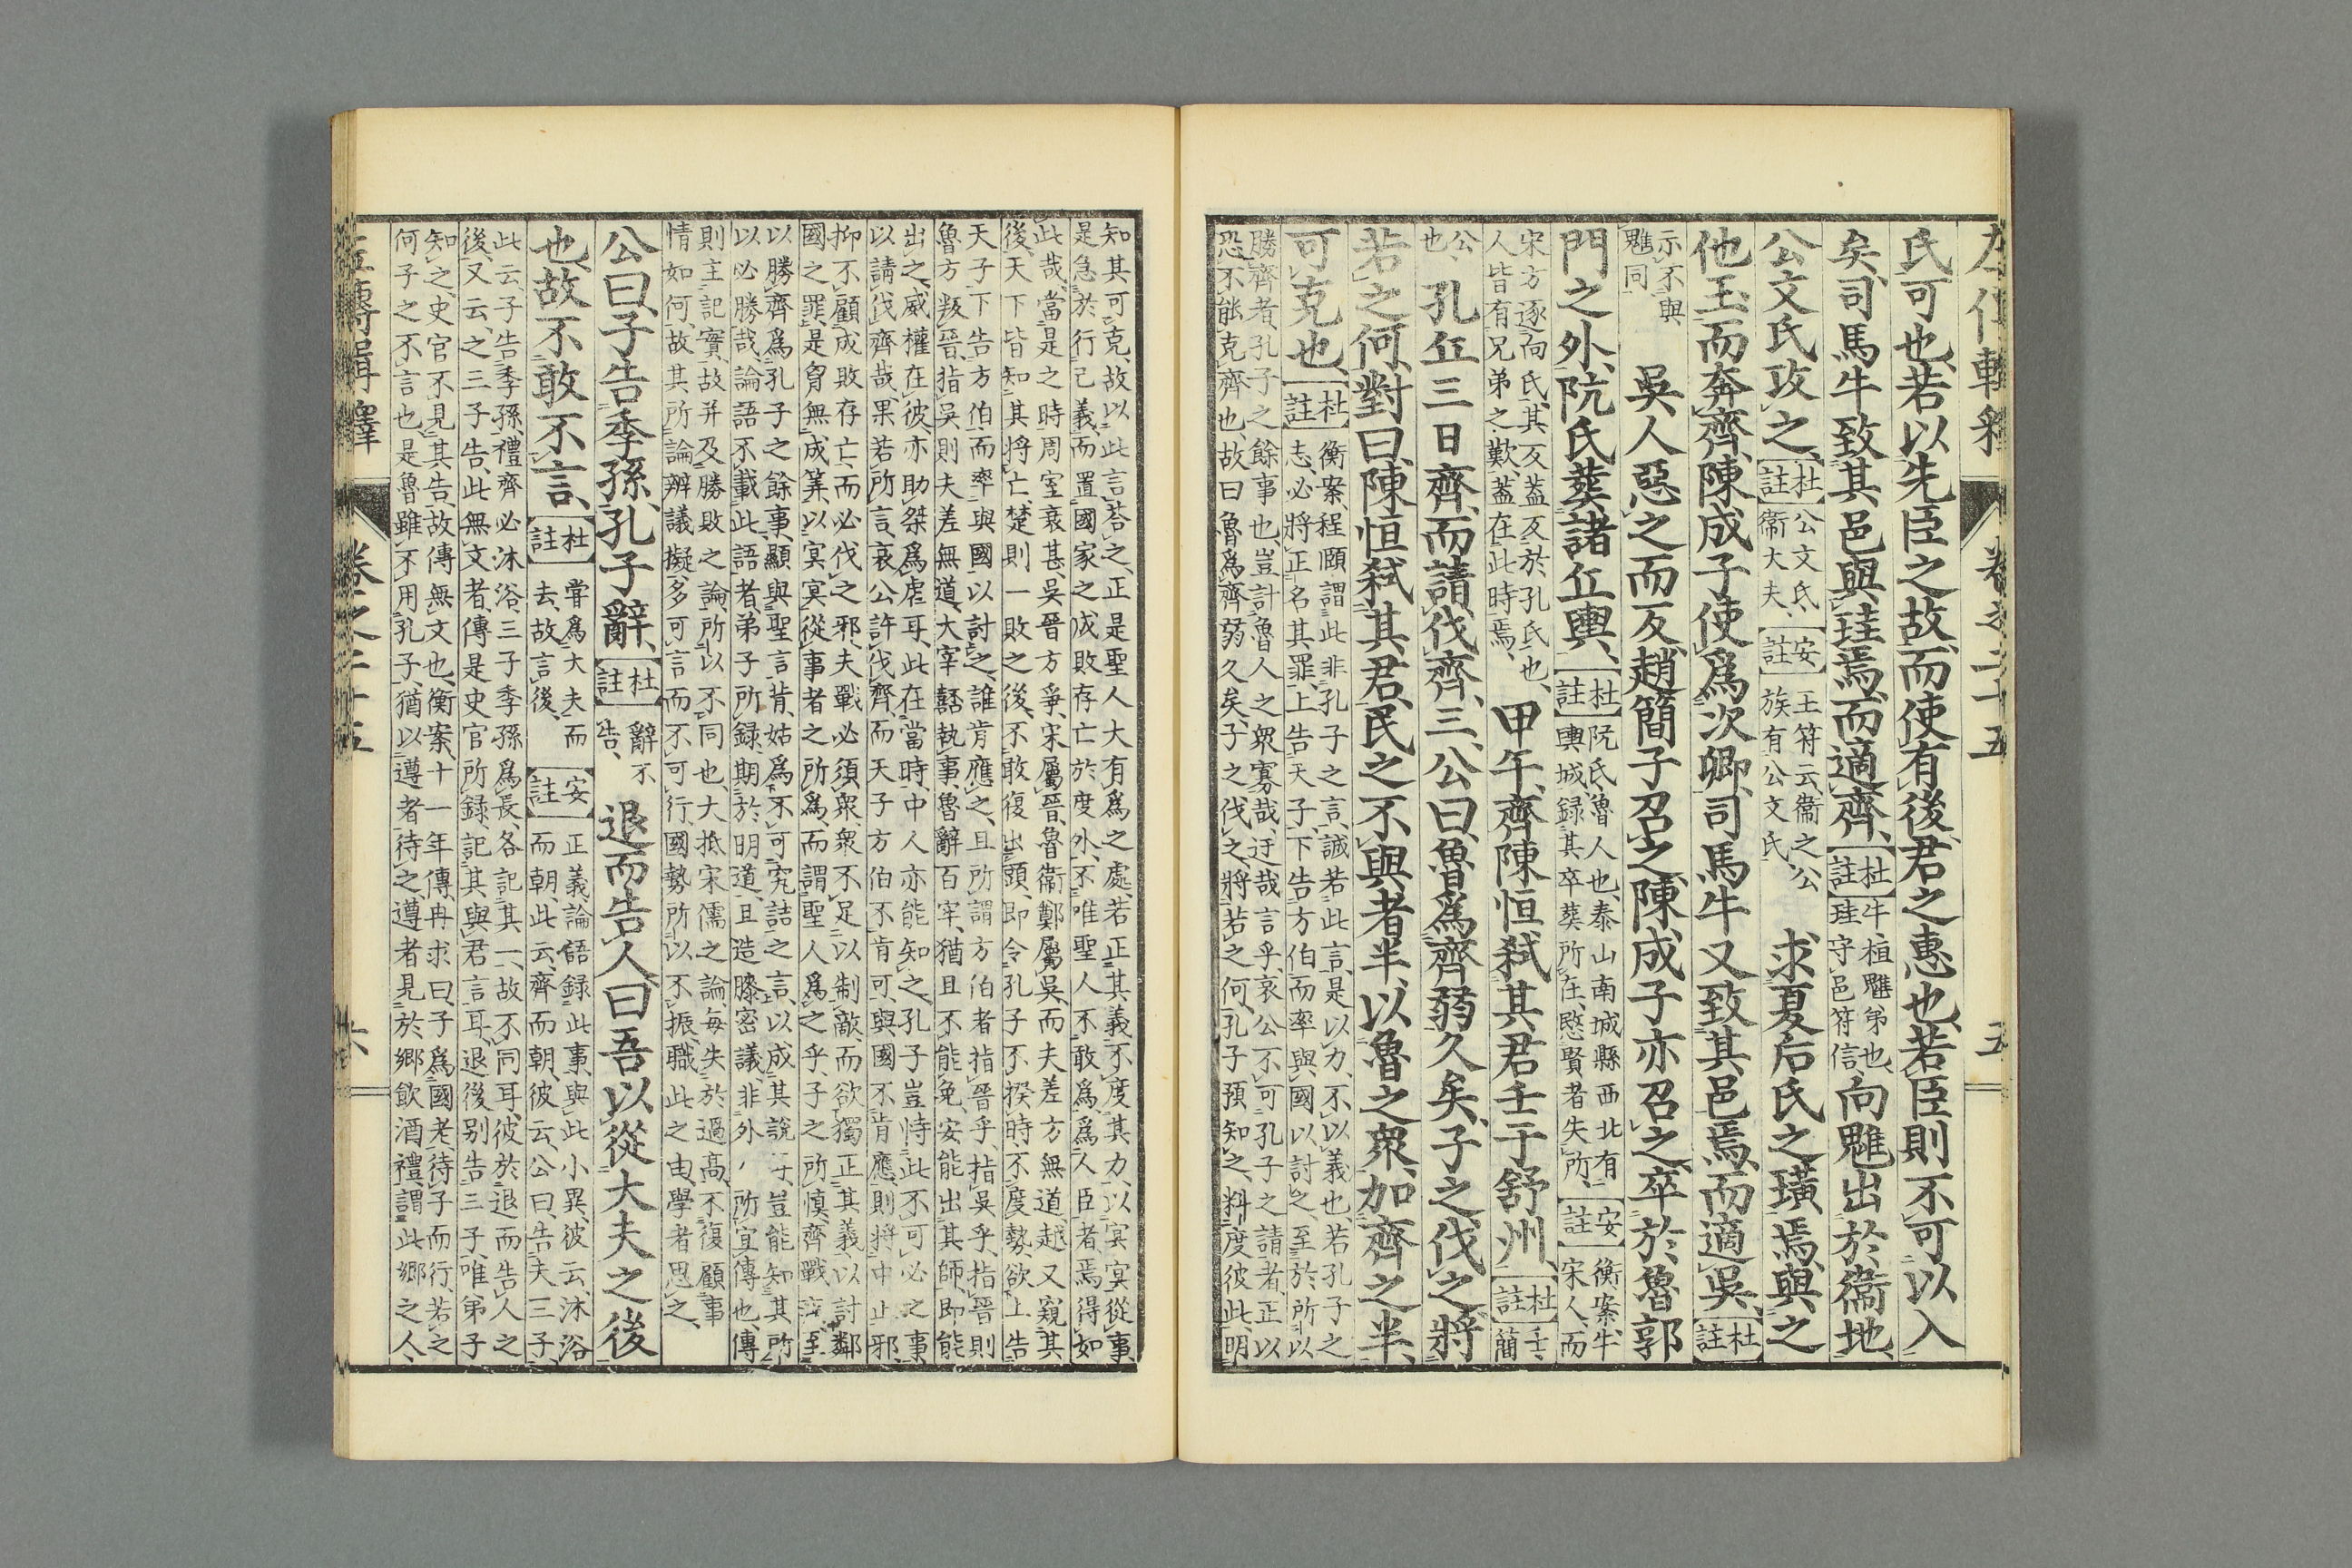 左傳輯釋
卷之二十五
五
氏可也、若以先臣之故、而使有後、君之惠也、若臣則不可以入
矣、司馬牛致其邑與珪焉、而適齊、杜註牛桓魋弟也、珪守邑符信、向魋出於衞地、
公文氏攻之、杜註公文氏、衞大夫、安註王符云、衞之公族有公文氏、求夏后氏之璜焉、與之
他玉、而奔齊、陳成子使爲次卿、司馬牛又致其邑焉、而適吳、杜註
示不與魋同、吳人惡之而反、趙簡子召之、陳成子亦召之、卒於魯郭
門之外、阬氏葬諸丘輿、杜註阬氏、魯人也、泰山南城縣西北有輿城、録其卒葬所在、愍賢者失所、安註衡案、牛宋人、而
宋方逐向氏、其反葢反於孔氏也、人皆有兄弟之歎、葢在此時焉、甲午、齊陳恒弑其君壬于舒州、杜註壬、簡
公也、孔丘三日齊、而請伐齊、三、公曰、魯爲齊弱久矣、子之伐之、將
若之何、對曰、陳恒弑其君、民之不與者半、以魯之衆、加齊之半、
可克也、杜註衡案、程頤謂此非孔子之言、誠若此言、是以力、不以義也、若孔子之志、必將正名其罪、上告天子、下告方伯、而率與國以討之、至於所以
勝齊者、孔子之餘事也、豈計魯人之衆寡哉、迂哉言乎、哀公不可孔子之請者、正以恐不能克齊也、故曰魯爲齊弱久矣、子之伐之、將若之何、孔子預知之、料度彼此、明
知其可克、故以此言荅之、正是聖人大有爲之處、若正其義、不度其力、以冥冥從事、是急於行己義、而置國家之成敗存亡於度外、不唯聖人不敢爲、爲人臣者、焉得如
此哉、當是之時、周室衰甚、吳晉方爭、宋屬晉、魯衞鄭屬吳、而夫差方無道、越又窺其後、天下皆知其將亡、楚則一敗之後、不敢復出頭、即令孔子不揆時、不度勢、欲上告
天子、下告方伯、而率與國以討之、誰肯應之、且所謂方伯者、指晉乎、指吳乎、指晉則魯方叛晉、指吳則夫差無道、大宰嚭執事、魯辭百牢、猶且不能免、安能出其師、即能
出之、威權在彼、亦助桀爲虐耳、此在當時、中人亦能知之、孔子豈恃此不可必之事、以請伐齊哉、果若所言、哀公許伐齊、而天子方伯不肯可、與國不肯應、則將中止邪、
抑不顧成敗存亡、而必伐之邪、夫戰必須衆、衆不足以制敵、而欲獨正其義、以討鄰國之罪、是胷無成筭、以冥冥從事者之所爲、而謂聖人爲之乎、子之所愼、齊戰
以勝齊爲孔子之餘事、顯與聖言背、姑爲不可究詰之言、以成其說豈能知其所以必勝哉、論語不載此語者、弟子所録、期於明道、且造膝密議、非外所宜傳也、傳
則主記實、故并及勝敗之論、所以不同也、大抵宋儒之論、每失於過高、不復顧事情如何、故其所論辨議擬、多可言而不可行、國勢所以不振、職此之由、學者思之、
公曰、子告季孫、孔子辭、杜註辭不告、退而告人曰、吾以從大夫之後
也、故不敢不言、杜註嘗爲大夫而去、故言後、安註正義、論語録此事、與此小異、彼云、沐浴而朝、此云、齊而朝、彼云、公曰、告夫三子、
此云、子告季孫、禮齊必沐浴、三子季孫爲長、各記其一、故不同耳、彼於退而告人之後、又云、之三子告、此無文者、傳是史官所録、記其與君言耳、退後別告三子、唯弟子
知之、史官不見其告、故傳無文也、衡案、十一年傳、冉求曰、子爲國老、待子而行、若之何子之不言也、是魯雖不用孔子、猶以遵者待之、遵者見於鄕飲酒禮、謂此鄕之人、
左傳輯釋
卷之二十五
六